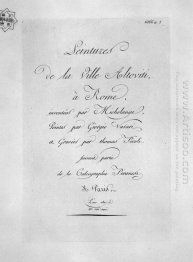 Peintures
de la Ville Altoviti,
à Rome,
inventées par Michelange,
Peintes par Giorgio Vasari
et Gravées par thomas Piroli
faisant partie
de la Calcographie Piranesi
de Paris